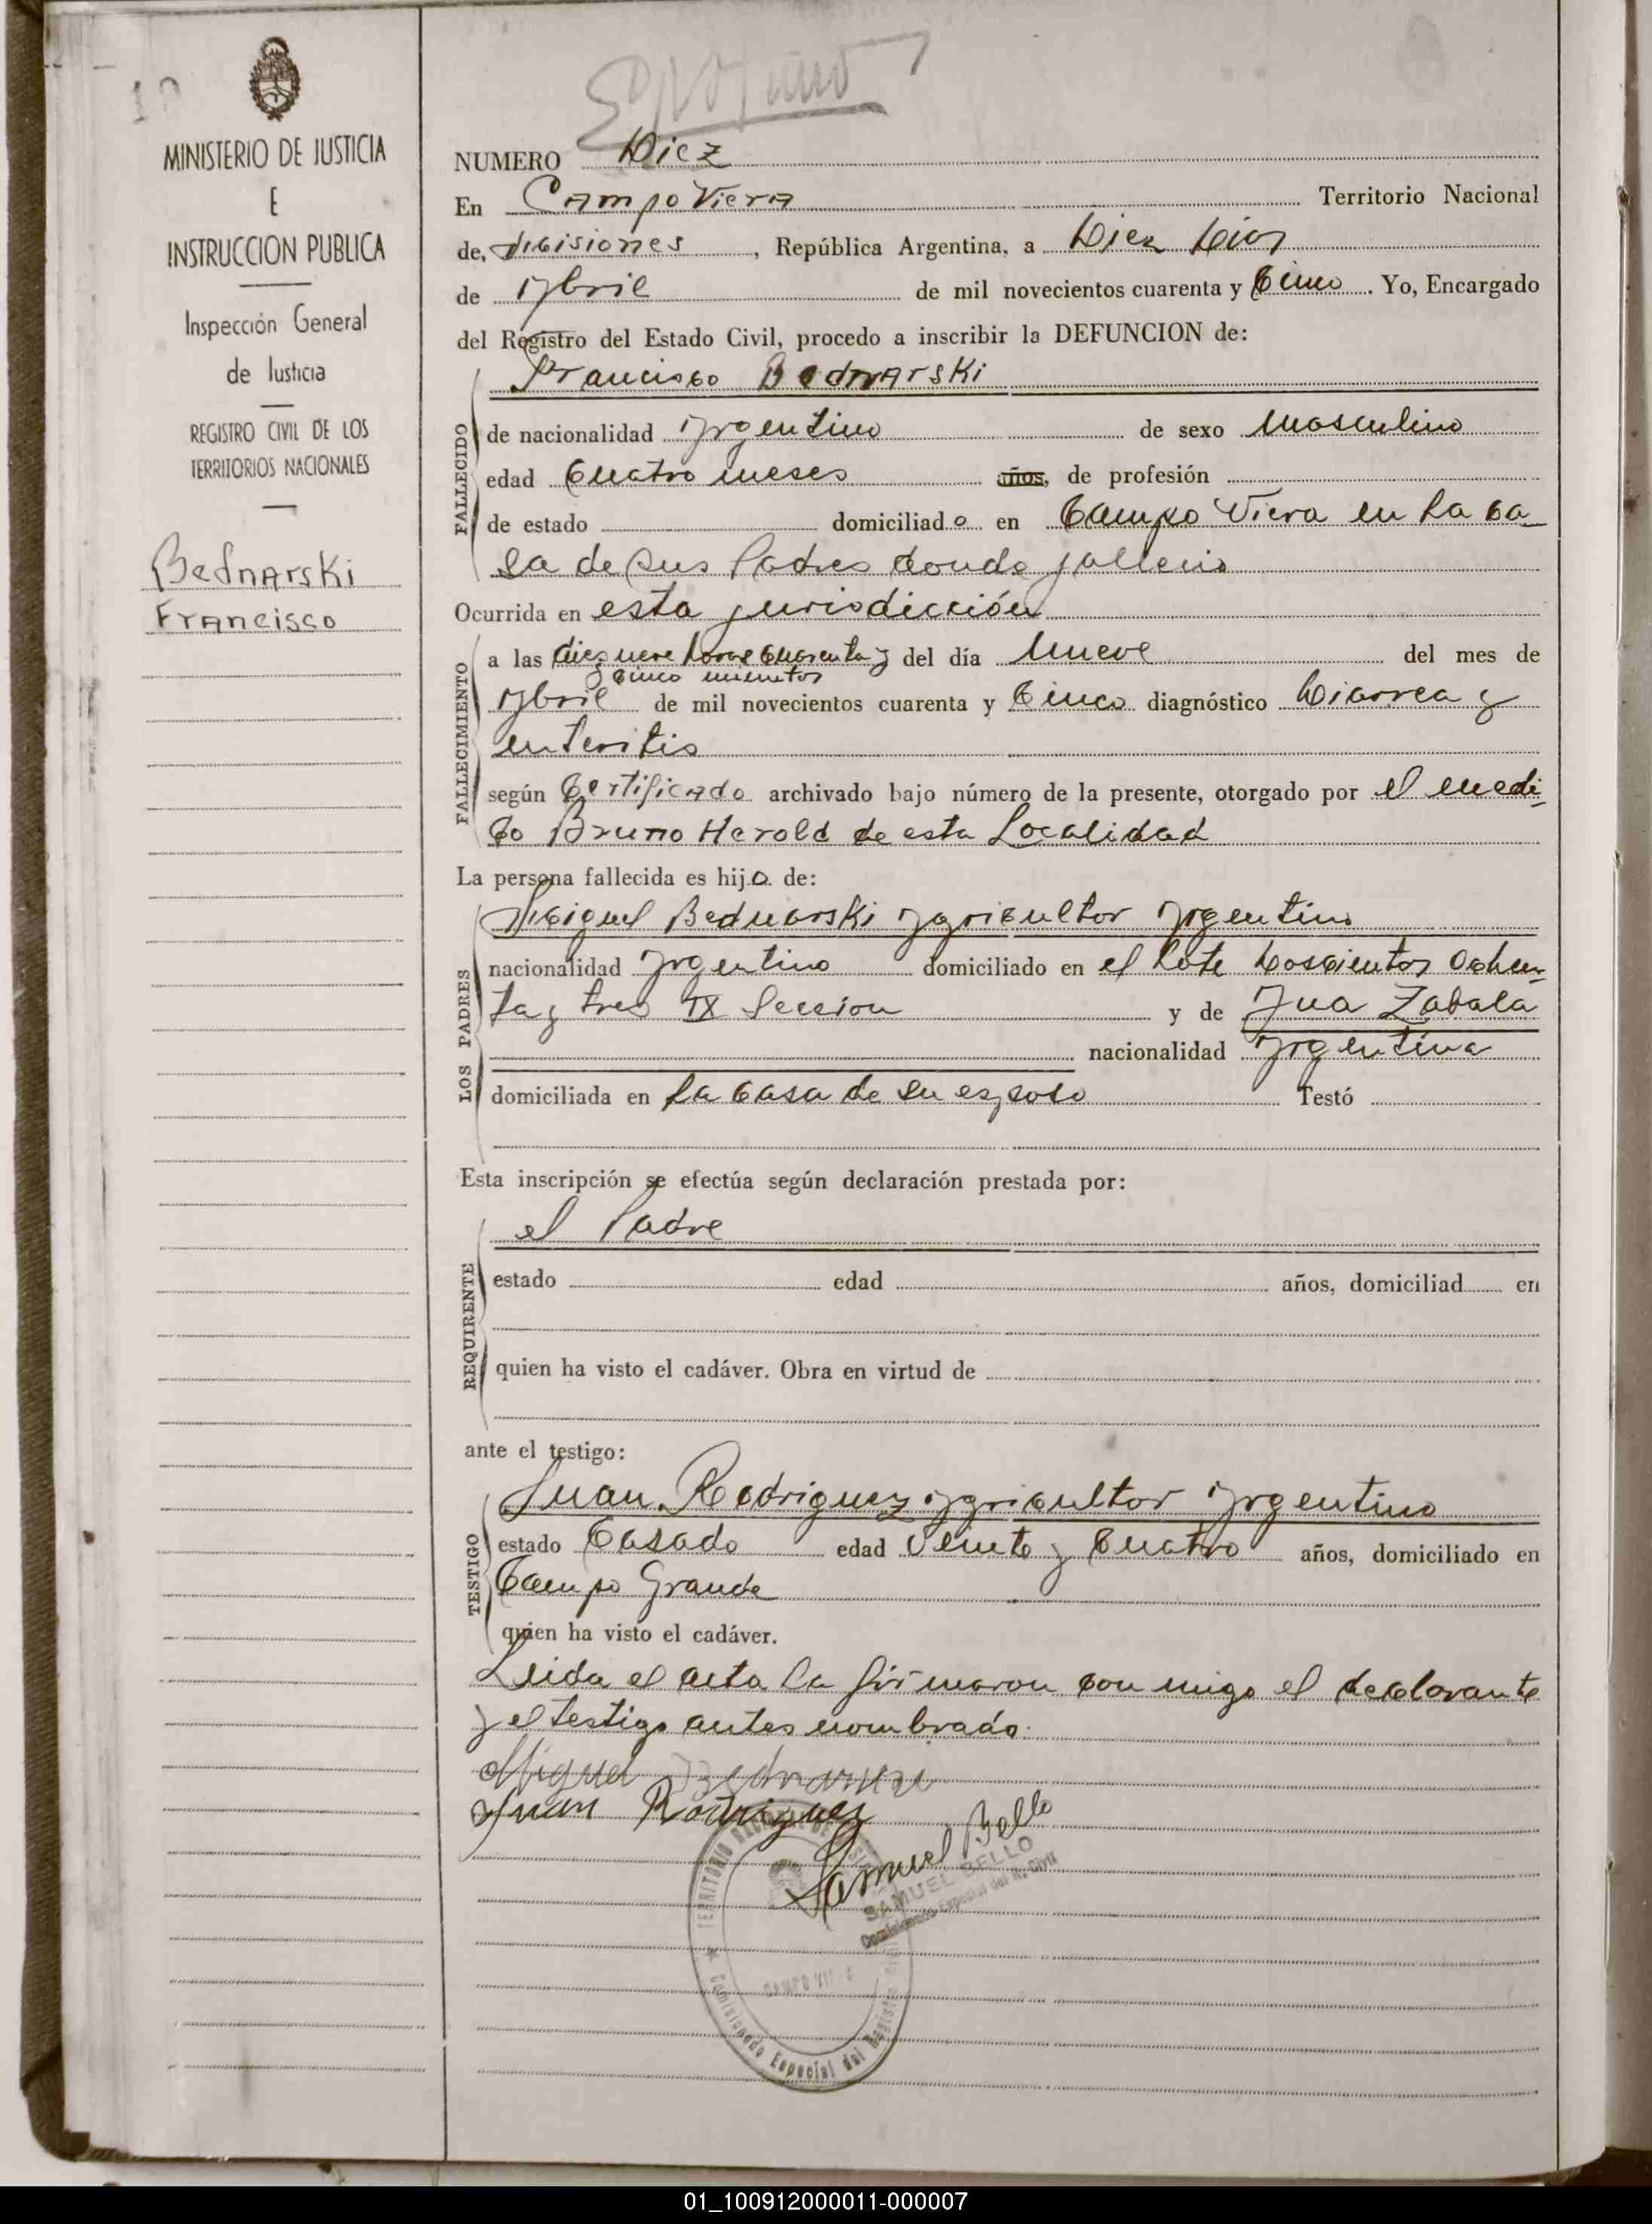 10
MINISTERIO DE JUSTICIA
E
INSTRUCCION PUBLICA
Inspección General
de Justicia
REGISTRO CIVIL DE LOS
TERRITORIOS NACIONALES
Bednarski
Francisco
NUMERO Diez
En Campo Viera Territorio Nacional
de, Misiones, República Argentina, a Diez Dias
de Abril de mil novecientos cuarenta y Cinco. Yo, Encargado
del Registro del Estado Civil, procedo a inscribir la DEFUNCION de:
Francisco Bednarski
FALLECIDO
de nacionalidad Argentino de sexo Masculino
edad Cuatro meses años, de profesión
de estado domiciliado en Campo Viera en la ca-
sa de sus Padres donde fallecio
Ocurrida en esta jurisdicción
FALLECIMIENTO
a las diez nueve horas cuarenta y del día Nueve del mes de
cinco minutos
Abril de mil novecientos cuarenta y Cinco diagnóstico Diarrea y
enteritis
según Certificado archivado bajo número de la presente, otorgado por el medi-
co Bruno Herold de esta Localidad
La persona fallecida es hijo de:
LOS PADRES
Miguel Bednarski Agricultor Argentino
nacionalidad Argentino domiciliado en el Lote Doscientos Ochen-
ta y tres IX Seccion y de Ana Zabala
nacionalidad Argentina
domiciliada en la casa de su esposo Testó
Esta inscripción se efectúa según declaración prestada por:
REQUIRENTE
el Padre
estado edad años, domiciliad en
quien ha visto el cadáver. Obra en virtud de
ante el testigo:
TESTIGO
Juan Rodriguez Agricultor Argentino
estado Casado edad Veinte y Cuatro años, domiciliado en
Campo Grande
quien ha visto el cadáver.
Leida el acta la firmaron con migo el declarante
y el testigo antes nombrado.
Miguel Bednarski
Juan Rodriguez
Samuel Bello
SAMUEL BELLO
Comisionado Especial del R. Civil
TERRITORIO NACIONAL DE MISIONES
CAMPO VIERA
Comisionado Especial del Registro Civil
01_100912000011-000007